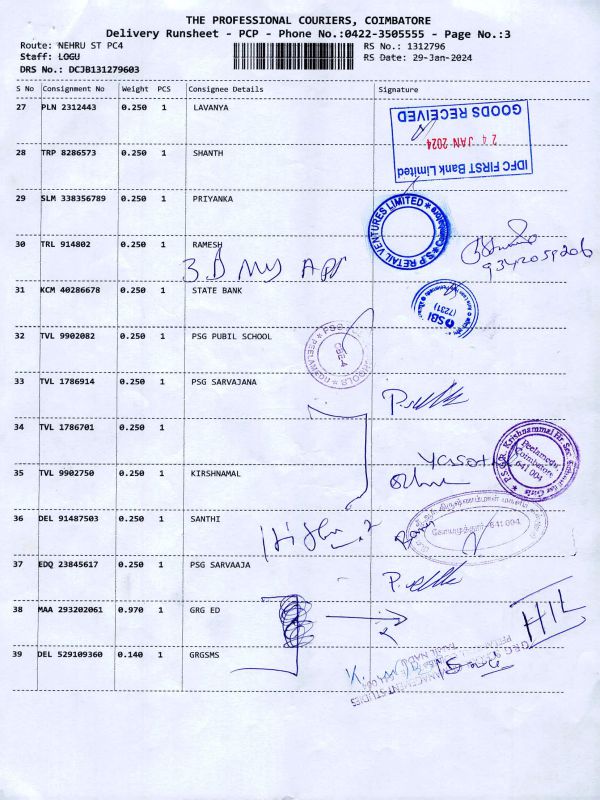 THE PROFESSIONAL COURIERS, COIMBATORE
Delivery Runsheet - PCP - Phone No.:0422-3505555 - Page No.:3
Route: NEHRU ST PC4 RS No.: 1312796
Staff: LOGU RS Date: 29-Jan-2024
DRS No.: DCJB131279603
S No Consignment No Weight PCS Consignee Details Signature
27 PLN 2312443 0.250 1 LAVANYA
IDFC FIRST Bank Limited
24 JAN 2024
GOODS RECEIVED
28 TRP 8286573 0.250 1 SHANTH
29 SLM 338356789 0.250 1 PRIYANKA
S.P RETAIL VENTURES LIMITED
30 TRL 914802 0.250 1 RAMESH
9342059206
31 KCM 40286678 0.250 1 STATE BANK
SBI
(7231)
32 TVL 9902082 0.250 1 PSG PUBIL SCHOOL
CBE-4
33 TVL 1786914 0.250 1 PSG SARVAJANA
34 TVL 1786701 0.250 1
P.S.G.R. Krishnammal Hr. Sec. School for Girls
Peelamedu,
Coimbatore
641 004
35 TVL 9902750 0.250 1 KIRSHNAMAL
36 DEL 91487503 0.250 1 SANTHI
கோயமுத்தூர் - 641 004
37 EDQ 23845617 0.250 1 PSG SARVAAJA
38 MAA 293202061 0.970 1 GRG ED
HIL
39 DEL 529109360 0.140 1 GRGSMS